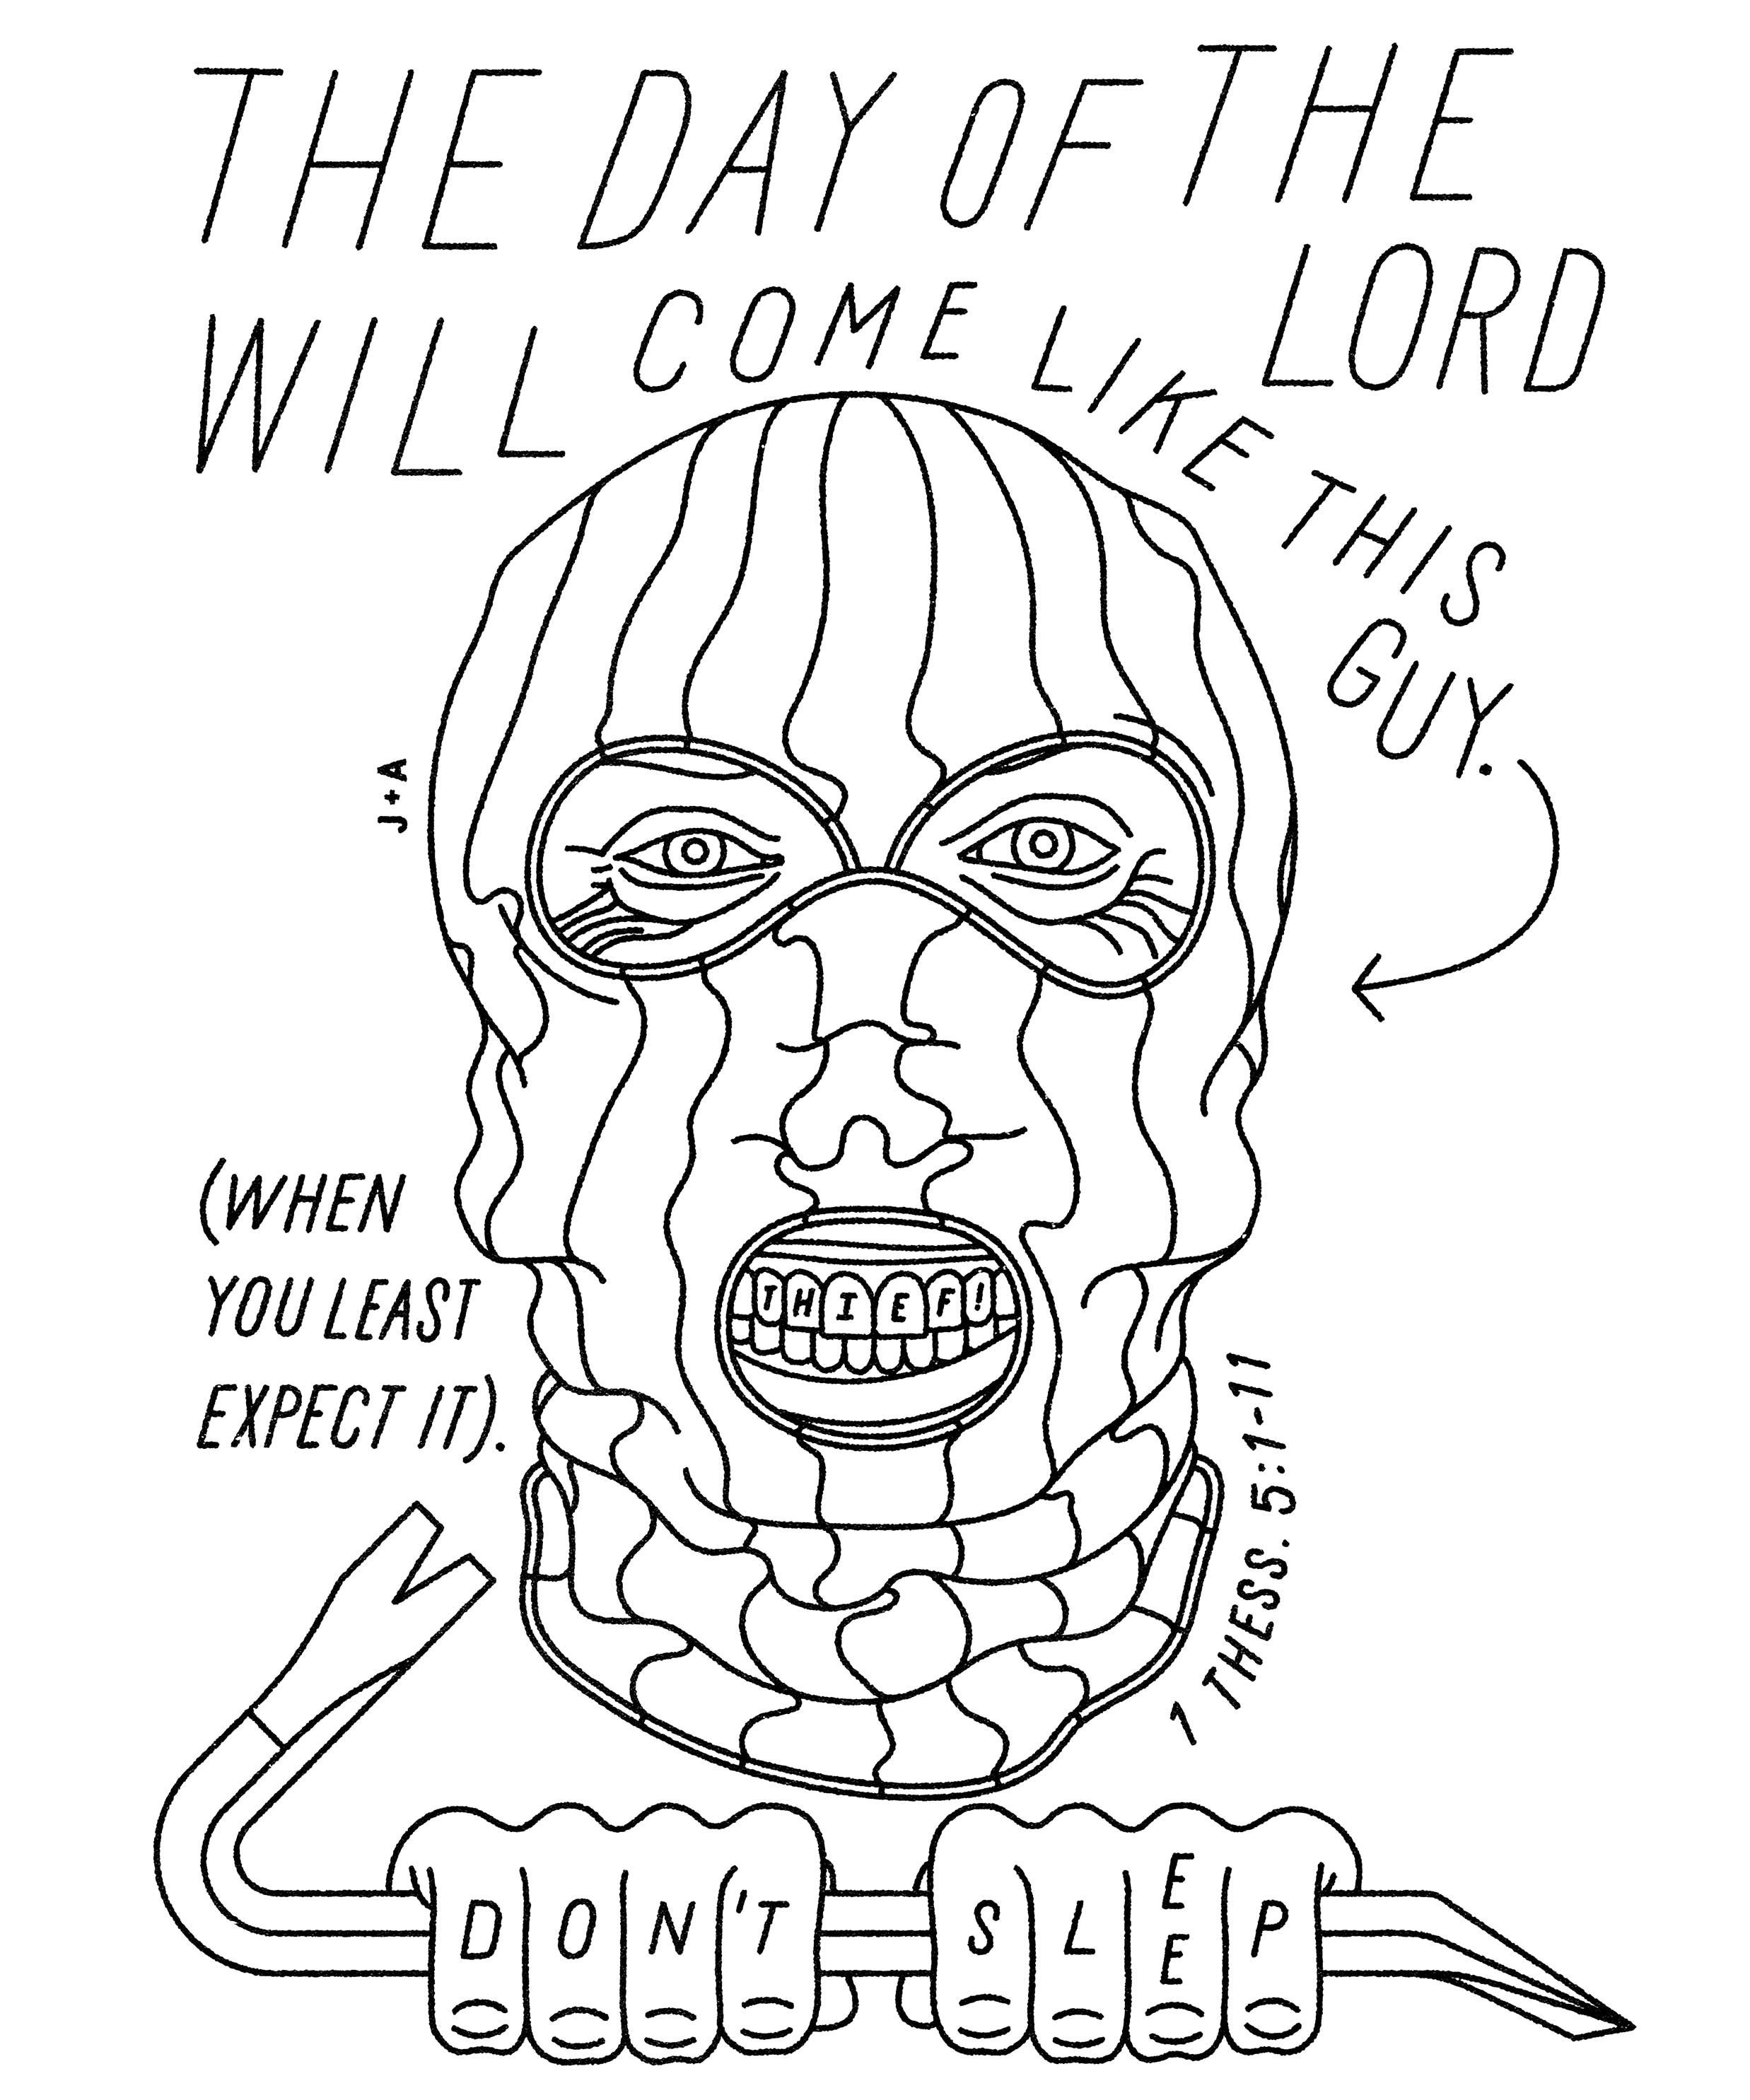 THE DAY OF THE
LORD
WILL COME LIKE THIS
GUY.
J+A
(WHEN
YOU LEAST
EXPECT IT).
THIEF!
1 THESS. 5:1-11
DON'T SLEEP